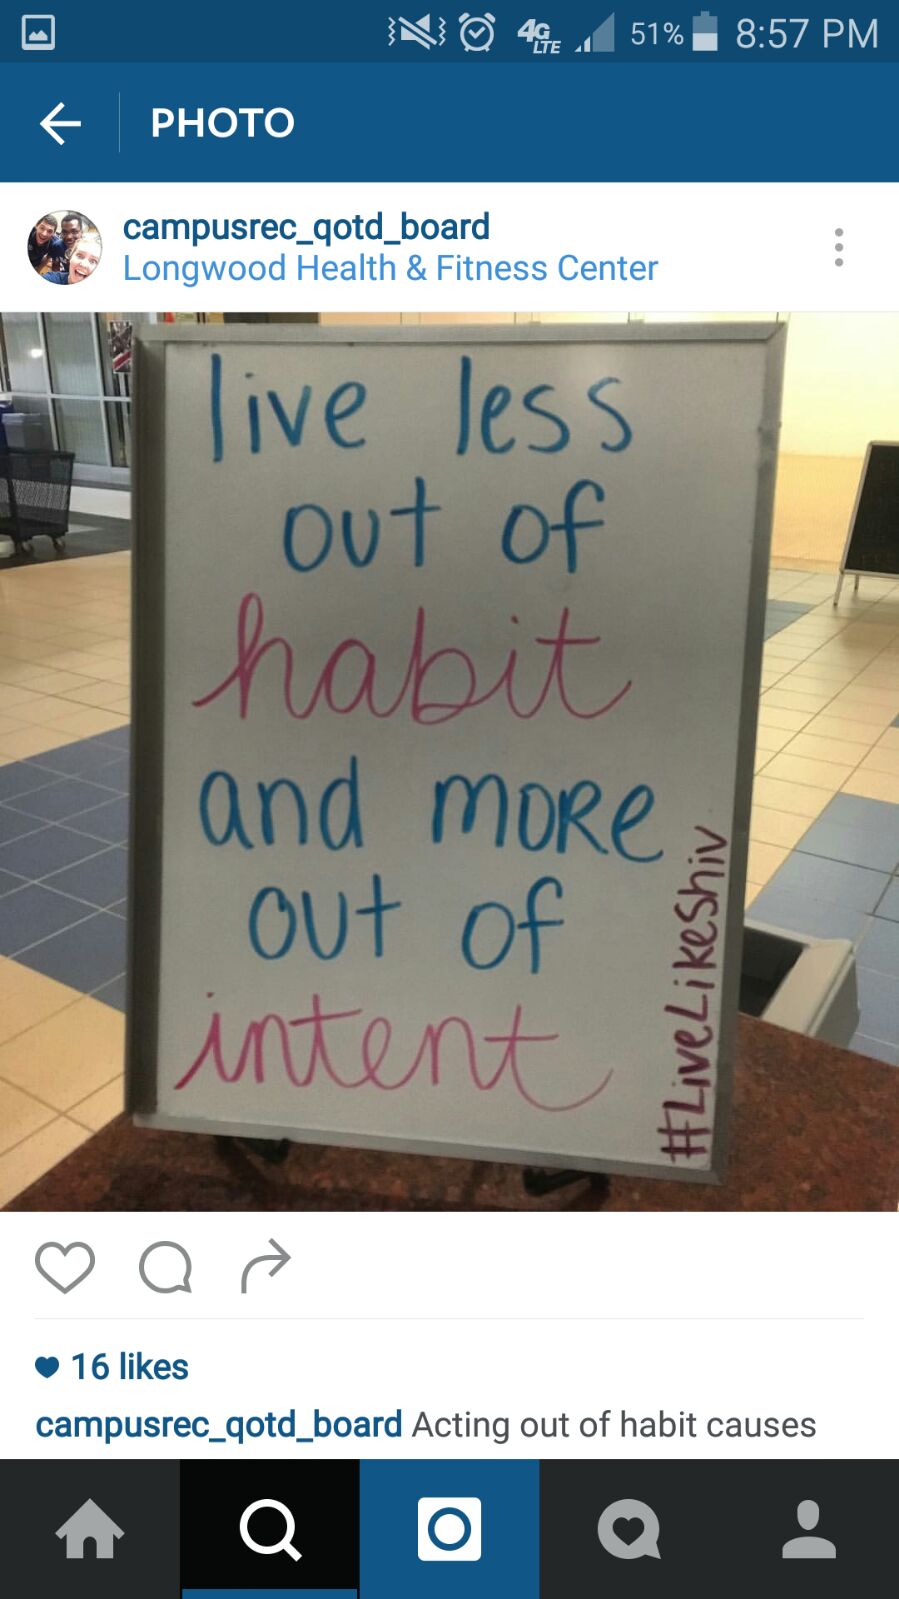 4G LTE 51% 8:57 PM
PHOTO
campusrec_qotd_board
Longwood Health & Fitness Center
live less
out of
habit
and more
out of
intent
#LiveLikeShiv
16 likes
campusrec_qotd_board Acting out of habit causes